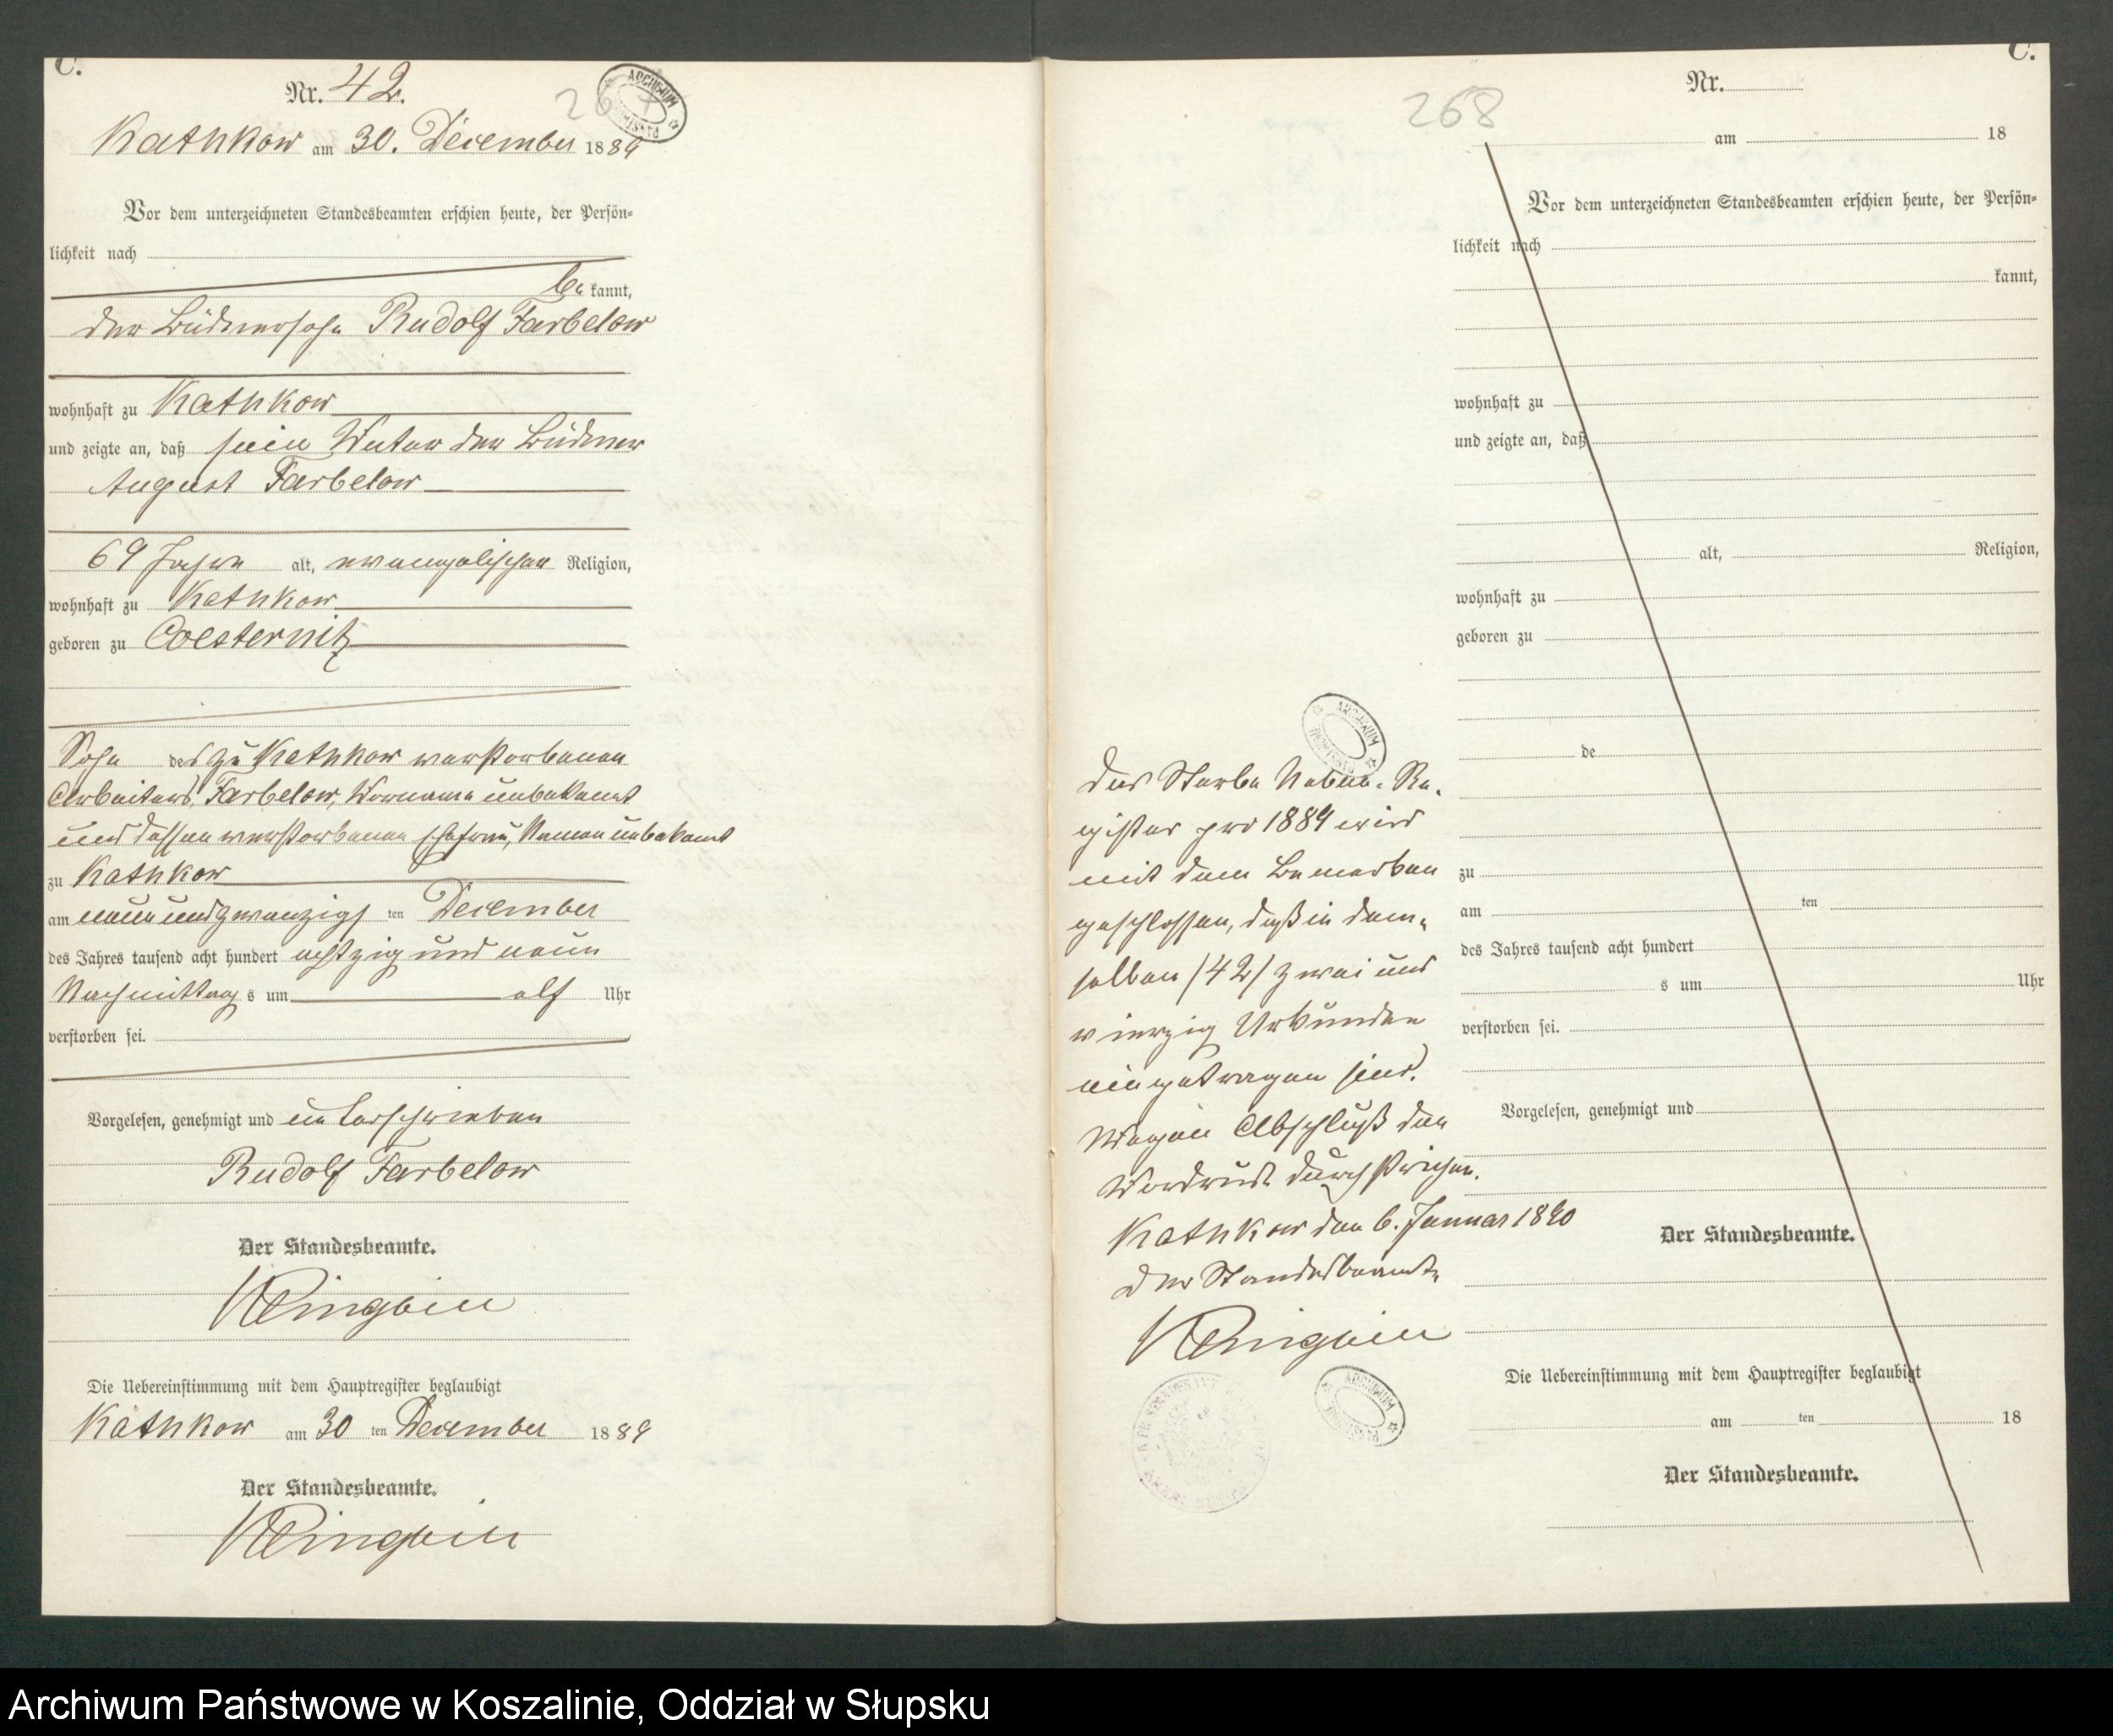 C.
Nr. 42.
267
ARCHIWUM
Kathkow am 30. December 1889
Vor dem unterzeichneten Standesbeamten erschien heute, der Persön-
lichkeit nach
be kannt,
der Büdnersohn Rudolf Farbelow
wohnhaft zu Kathkow
und zeigte an, daß sein Vater der Büdner
August Farbelow
69 Jahre alt, evangelischer Religion,
wohnhaft zu Kathkow
geboren zu Coesternitz
Sohn des zu Kathkow verstorbenen
Arbeiters Farbelow, Vorname unbekannt
und dessen verstorbenen Ehefrau, Namen unbekannt
zu Kathkow
am neunundzwanzigs ten December
des Jahres tausend acht hundert achtzig und neun
Nachmittags um elf Uhr
verstorben sei.
Vorgelesen, genehmigt und unterschrieben
Rudolf Farbelow
Der Standesbeamte.
Die Uebereinstimmung mit dem Hauptregister beglaubigt
Kathkow am 30 ten December 1889
Der Standesbeamte.
C.
268
Nr.
am 18
Vor dem unterzeichneten Standesbeamten erschien heute, der Persön-
lichkeit nach
kannt,
wohnhaft zu
und zeigte an, daß
alt, Religion,
wohnhaft zu
geboren zu
de
zu
am ten
des Jahres tausend acht hundert
s um Uhr
verstorben sei.
Vorgelesen, genehmigt und
Der Standesbeamte.
Die Uebereinstimmung mit dem Hauptregister beglaubigt
am ten 18
Der Standesbeamte.
ARCHIWUM
Das Sterbe Neben-Re-
gister pro 1889 wird
mit dem Bemerken
geschlossen, daß in dem-
selben /42/ zwei und
vierzig Urkunden
eingetragen sind.
Wegen Abschluß den
Vordruck durchstrichen.
Kathkow den 6. Januar 1890
Der Standesbeamte
ARCHIWUM
Archiwum Państwowe w Koszalinie, Oddział w Słupsku